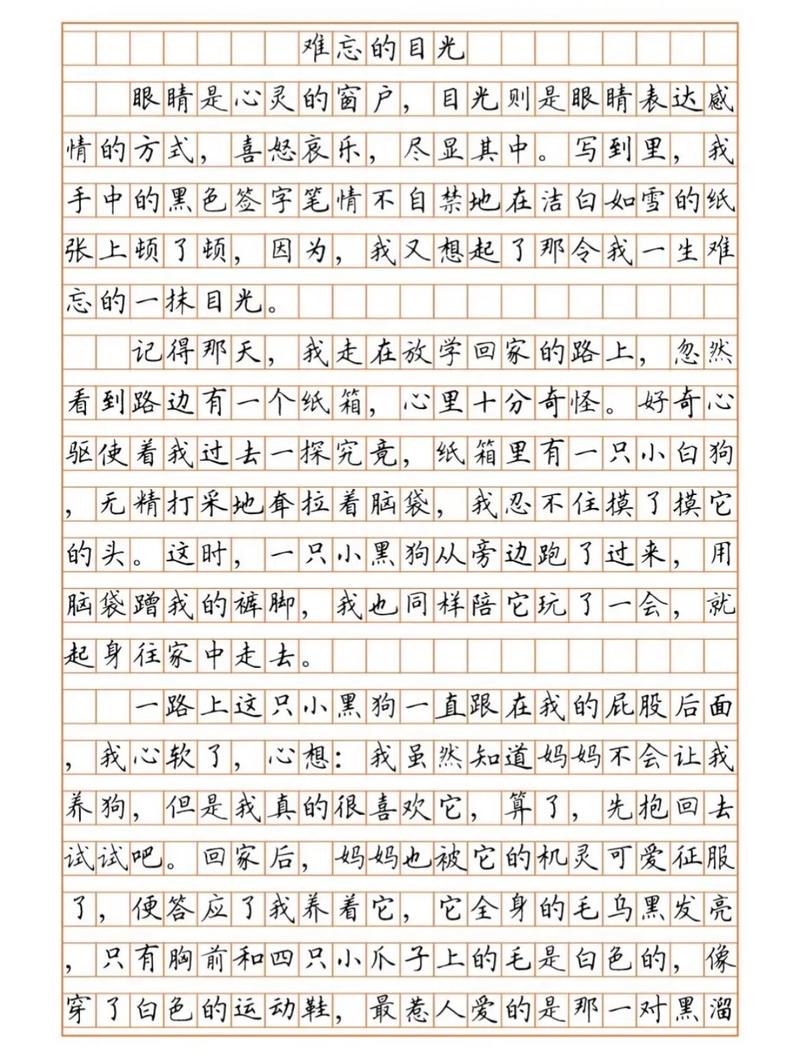 难忘的目光
眼睛是心灵的窗户，目光则是眼睛表达感
情的方式，喜怒哀乐，尽显其中。写到里，我
手中的黑色签字笔情不自禁地在洁白如雪的纸
张上顿了顿，因为，我又想起了那令我一生难
忘的一抹目光。
记得那天，我走在放学回家的路上，忽然
看到路边有一个纸箱，心里十分奇怪。好奇心
驱使着我过去一探究竟，纸箱里有一只小白狗
，无精打采地耷拉着脑袋，我忍不住摸了摸它
的头。这时，一只小黑狗从旁边跑了过来，用
脑袋蹭我的裤脚，我也同样陪它玩了一会，就
起身往家中走去。
一路上这只小黑狗一直跟在我的屁股后面
，我心软了，心想：我虽然知道妈妈不会让我
养狗，但是我真的很喜欢它，算了，先抱回去
试试吧。回家后，妈妈也被它的机灵可爱征服
了，便答应了我养着它，它全身的毛乌黑发亮
，只有胸前和四只小爪子上的毛是白色的，像
穿了白色的运动鞋，最惹人爱的是那一对黑溜